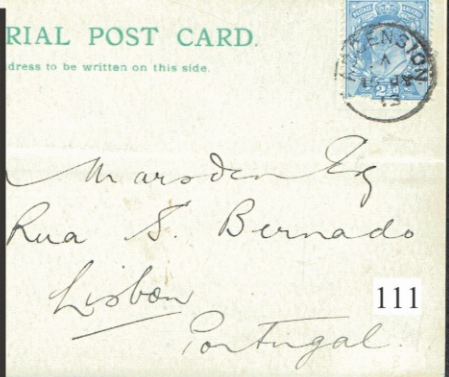 RIAL POST CARD.
dress to be written on this side.
Marsden Esq
Rua S. Bernado
Lisbon
Portugal.
111